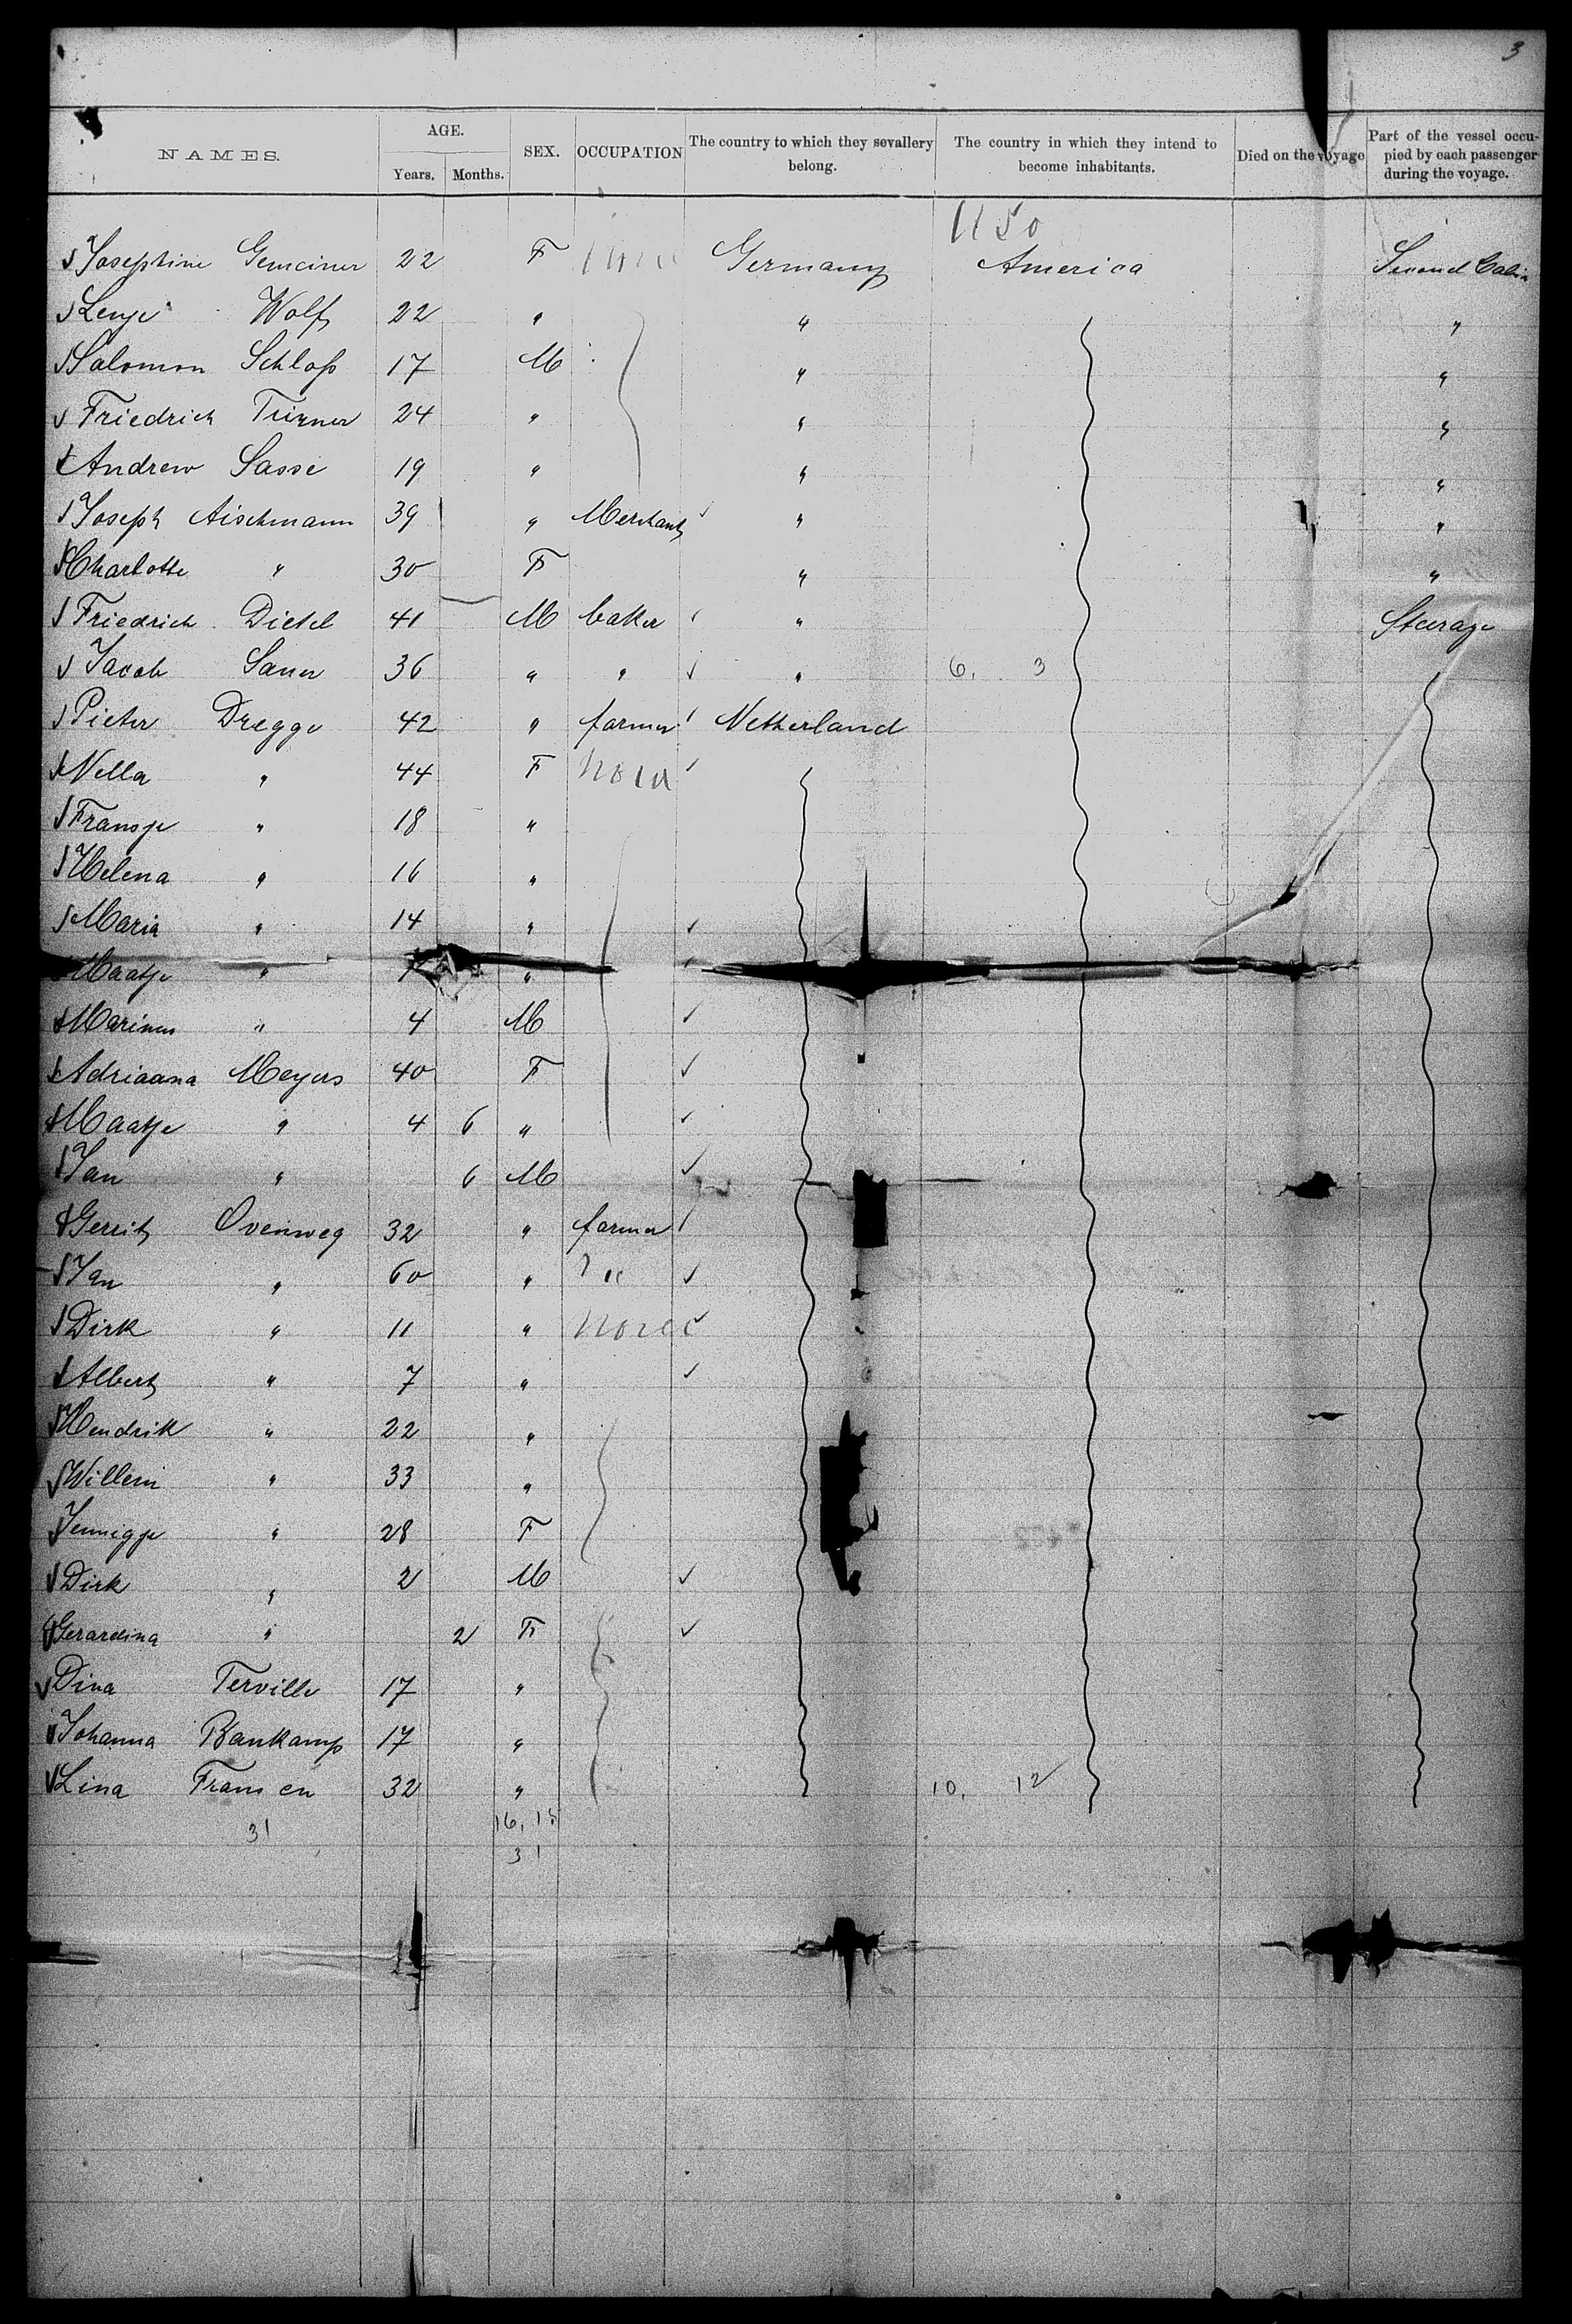 3
NAMES. AGE. Years. Months. SEX. OCCUPATION The country to which they sevallery belong. The country in which they intend to become inhabitants. Died on the voyage Part of the vessel occupied by each passenger during the voyage.
1150
Josephine 22 F Germany America Second Cabin
Wolf 22 " " "
Salomon Schloß 17 M " "
Friedrich 24 " " "
Andrew Sasse 19 " " "
Joseph Aischmann 39 " Merchant " "
Charlotte " 30 F " "
Friedrich Dietel 41 M baker " Steerage
Jacob Sauer 36 " " " 6. 3
Pieter Dregge 42 " farmer Netherland
Nella " 44 F none
Fransje " 18 "
Helena " 16 "
Maria " 14 "
Maatje " "
Marinus " 4 M
Adriaana Meyers 40 F
Maatje " 4 6 "
Jan " 6 M
Gerrit Overweg 32 " farmer
Jan " 60 " "
Dirk " 11 " none
Albert " 7 "
Hendrik " 22 "
Willem " 33 "
Jennigje " 28 F
Dirk " 2 M
Gerardina " 2 F
Dina Terville 17 "
Johanna Bankamp 17 "
Lina Fransen 32 " 10. 12
31 16, 15
31